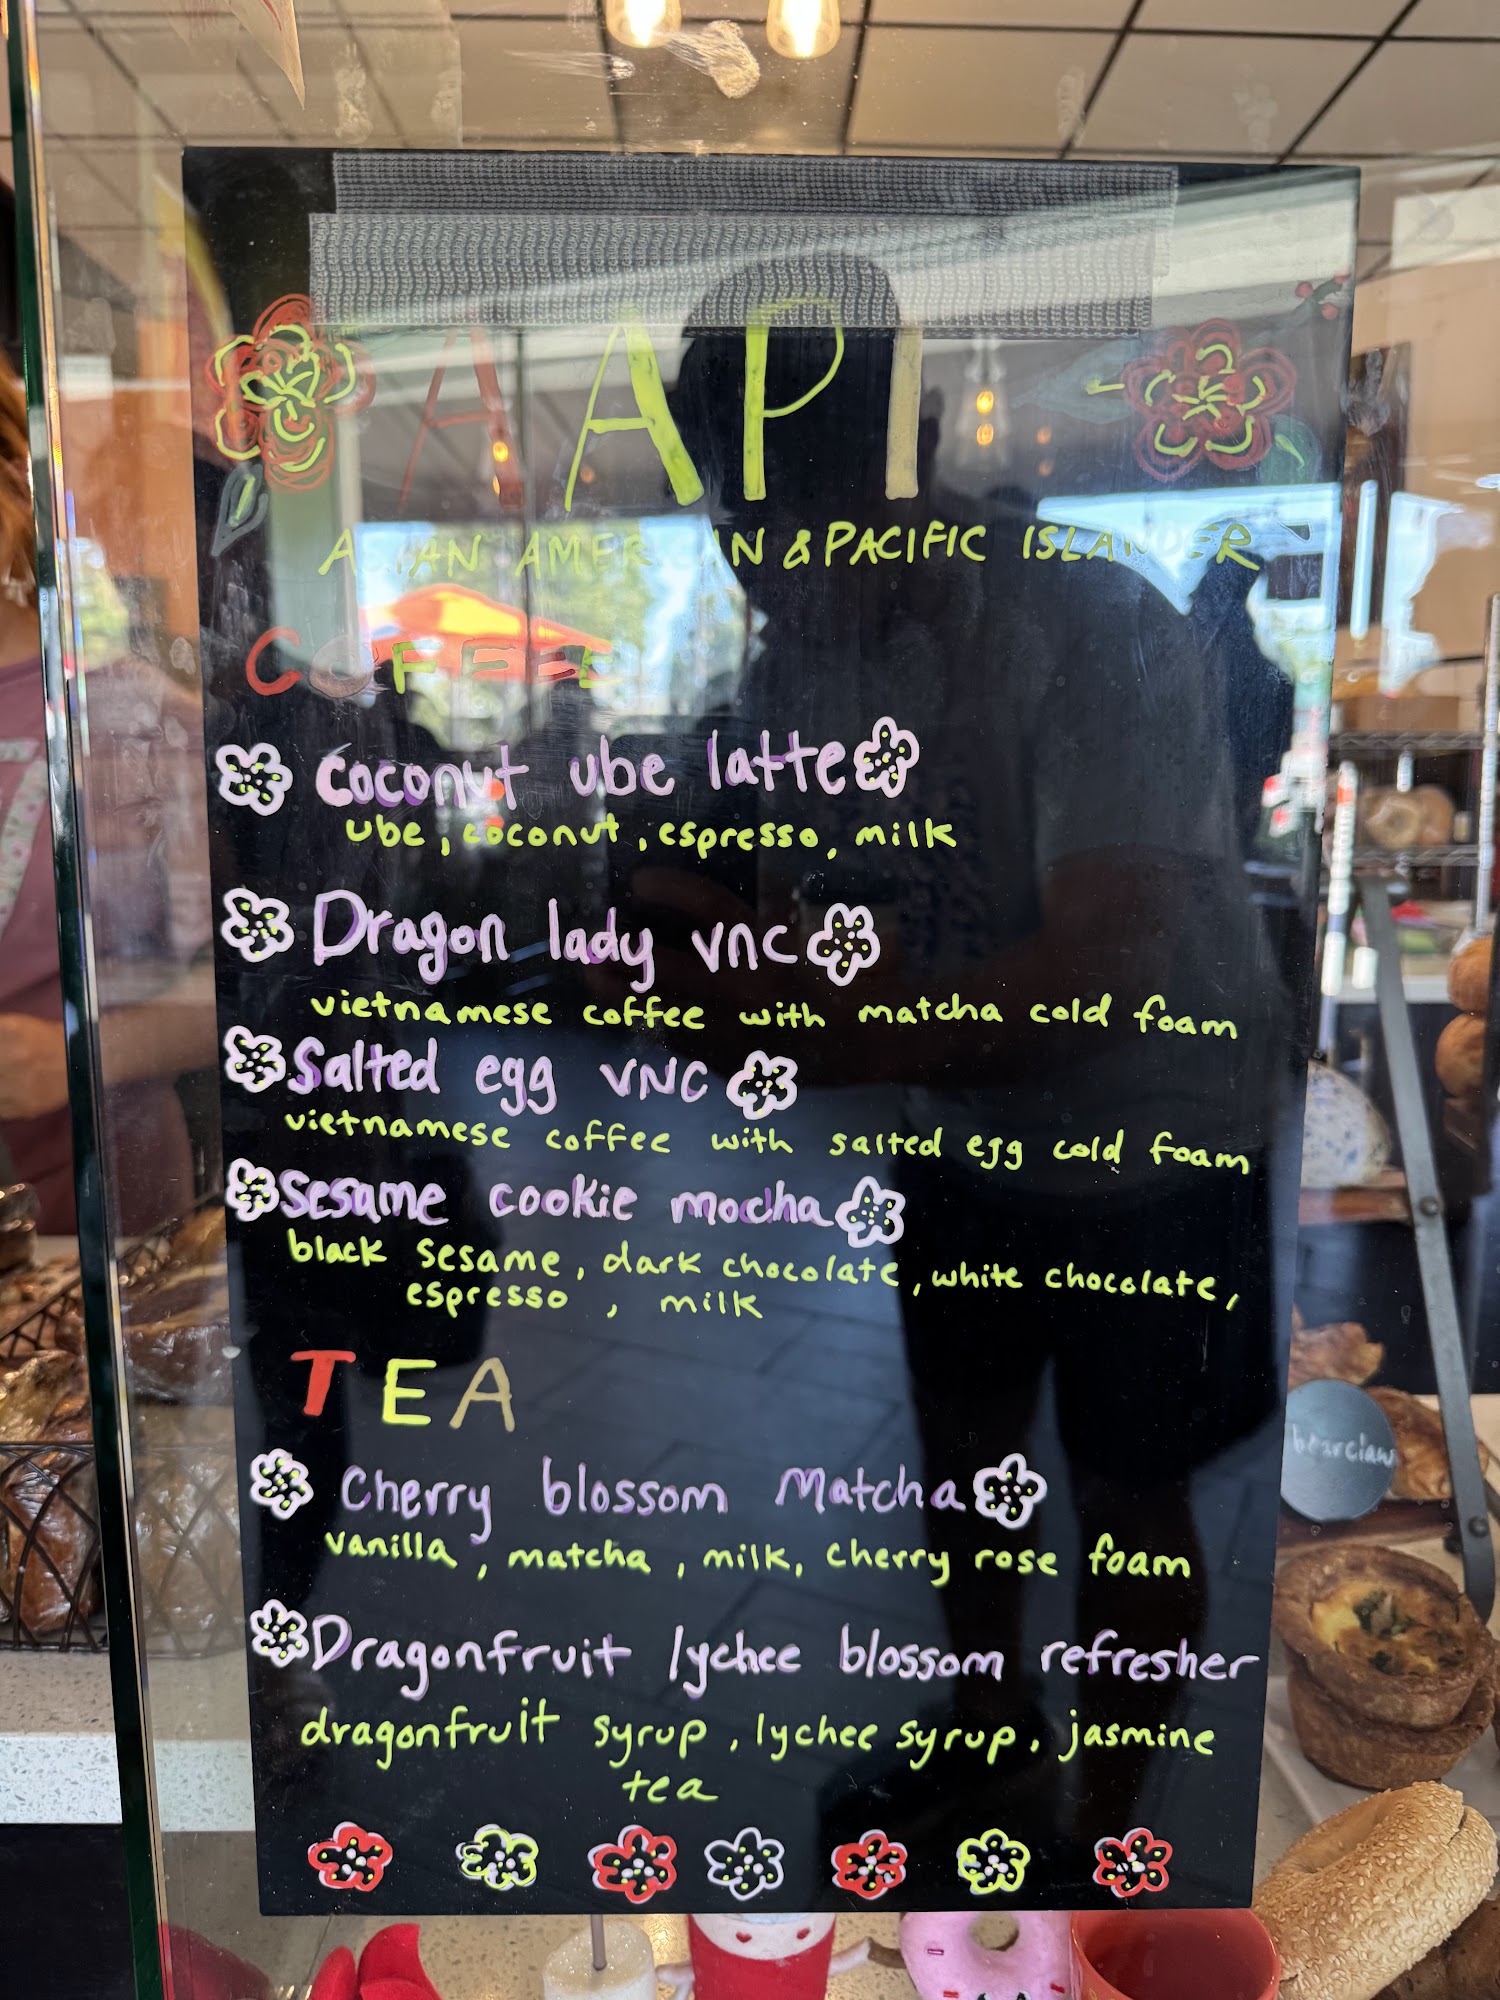 AAPI
ASIAN AMERICAN & PACIFIC ISLANDER
COFFEE
Coconut ube latte
ube, coconut, espresso, milk
Dragon lady VNC
vietnamese coffee with matcha cold foam
Salted egg VNC
vietnamese coffee with salted egg cold foam
Sesame cookie mocha
black sesame, dark chocolate, white chocolate,
espresso, milk
TEA
Cherry blossom Matcha
vanilla, matcha, milk, cherry rose foam
Dragonfruit lychee blossom refresher
dragonfruit syrup, lychee syrup, jasmine
tea
bearclaw